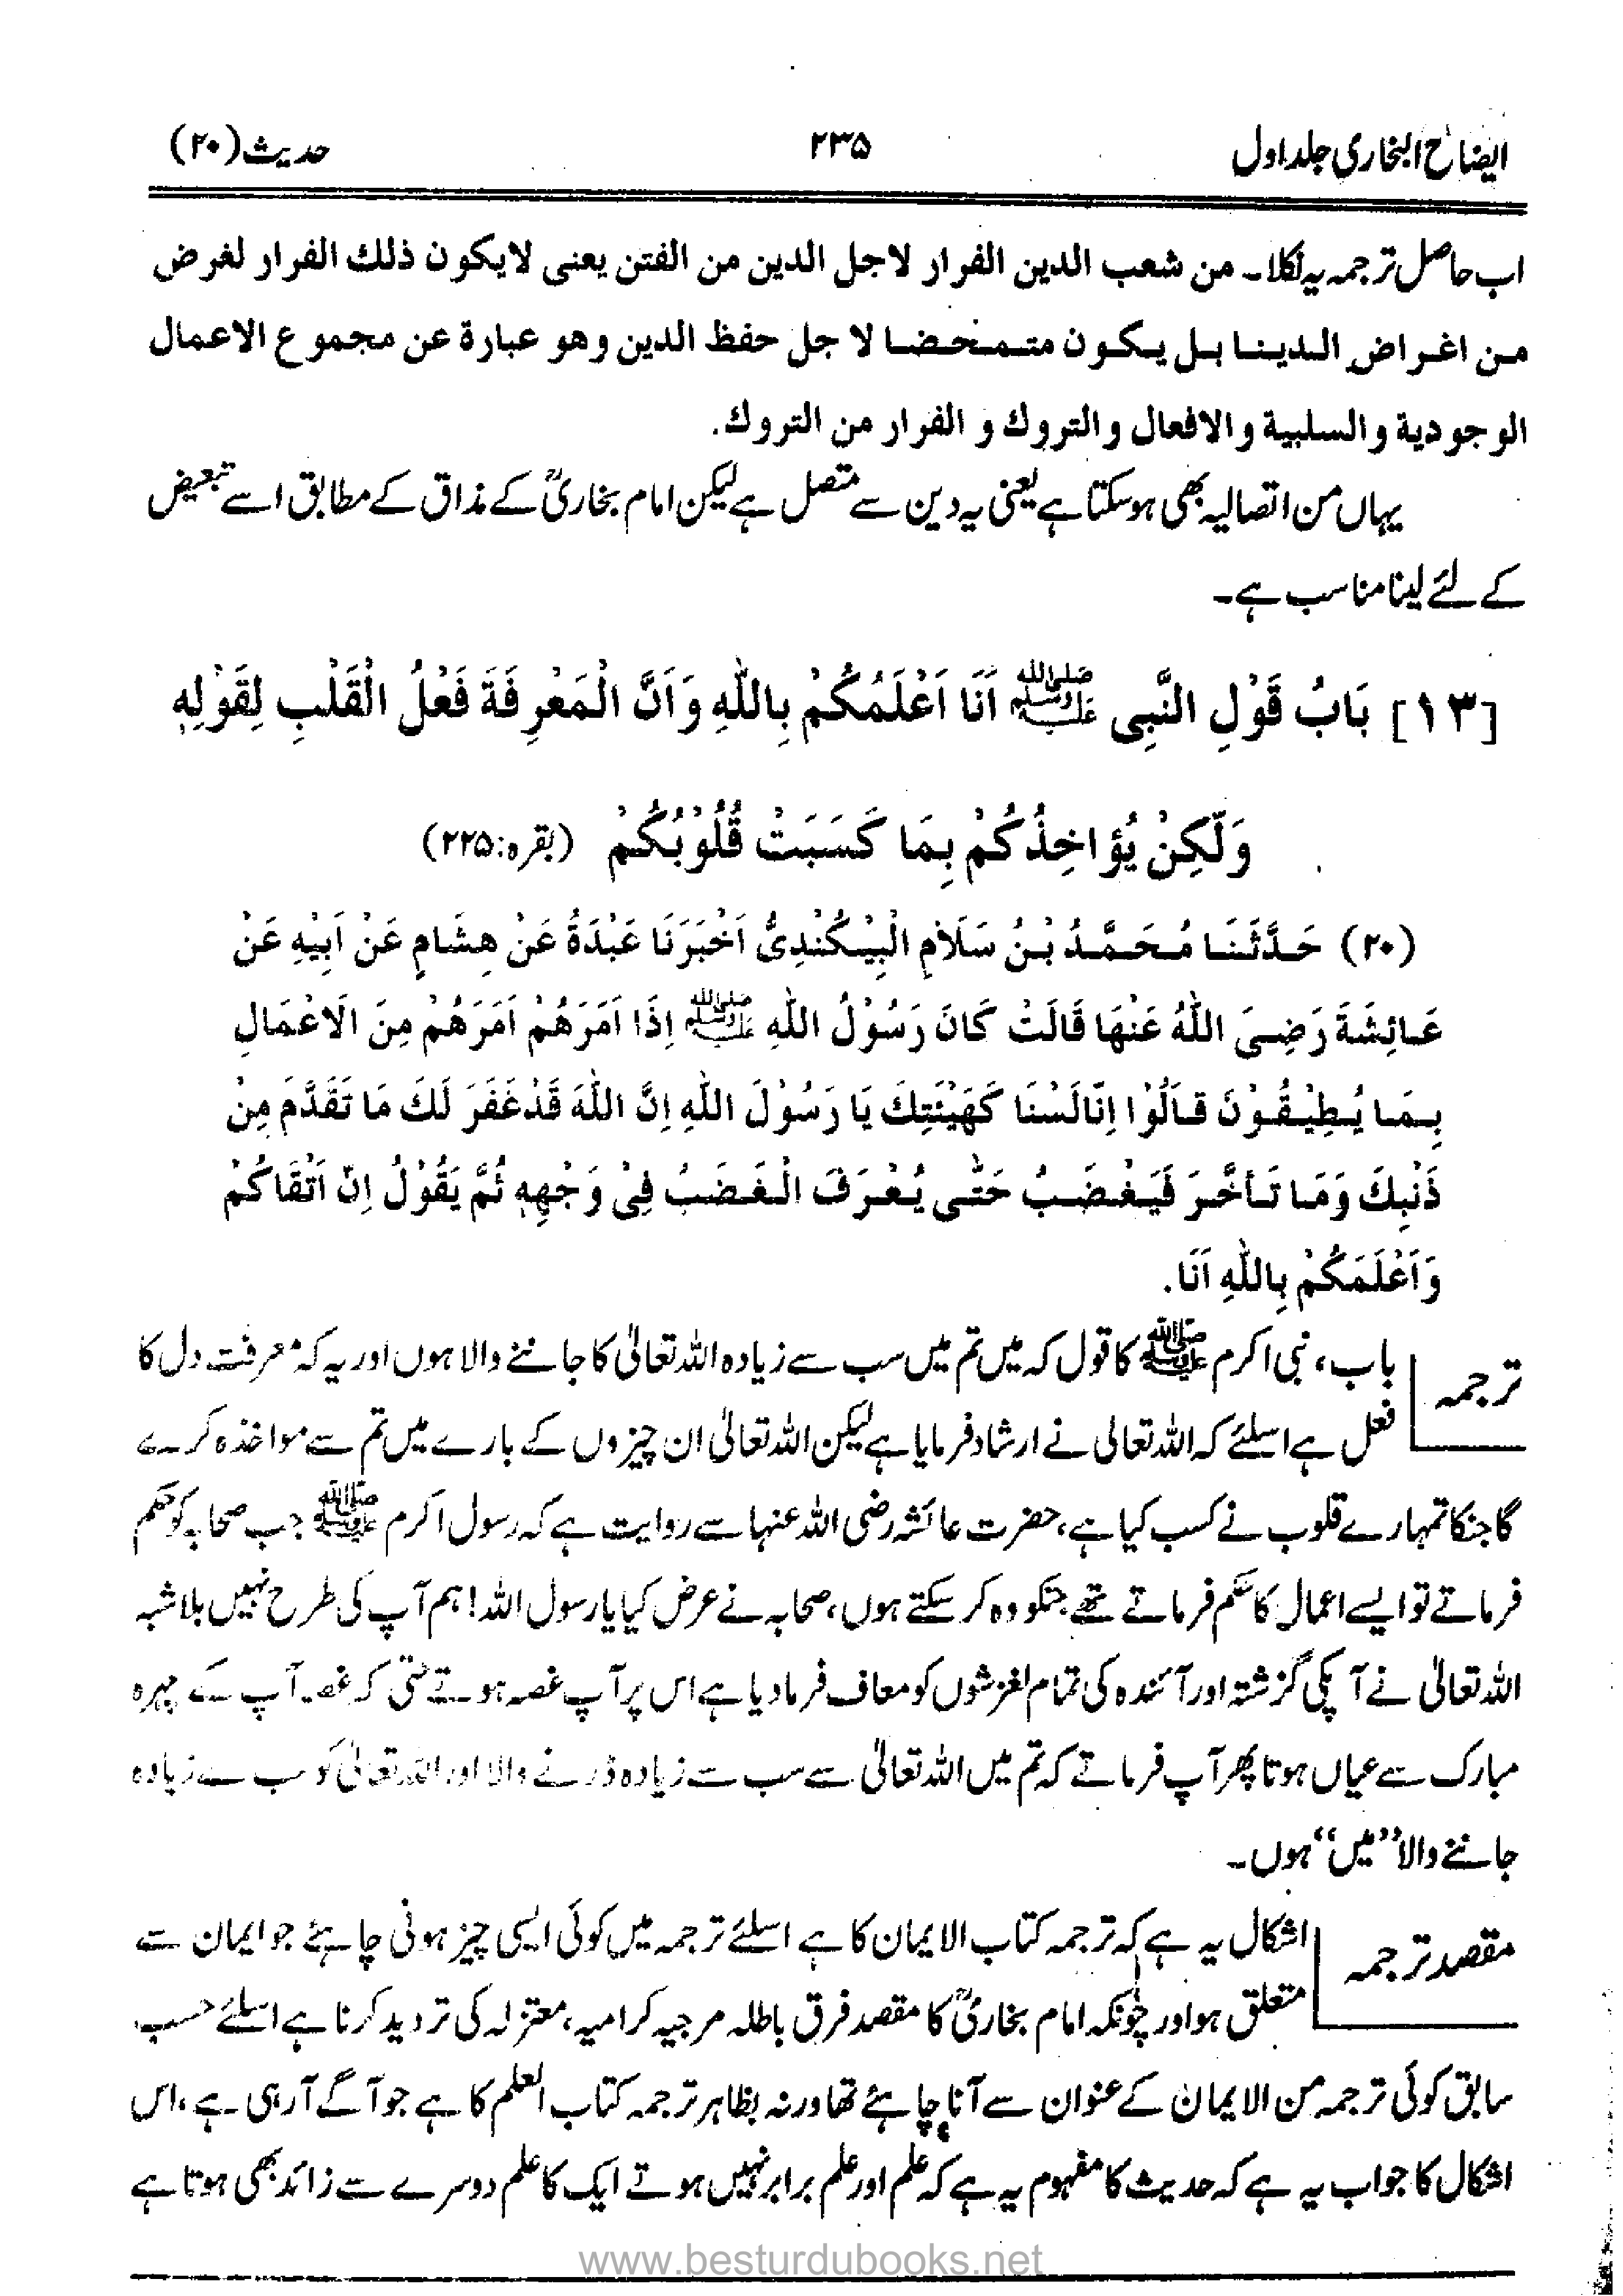 ایضاح البخاری جلد اول ۲۳۵ حدیث (۲۰)
اب حاصل ترجمہ یہ نکلا۔ من شعب الدین الفرار لاجل الدین من الفتن یعنی لایکون ذلك الفرار لغرض
من اغراض الدینا بل یکون متمخضا لا جل حفظ الدین وهو عبارة عن مجموع الاعمال
الوجودیة والسلبیة والافعال والتروك و الفرار من التروك.
یہاں من اتصالیہ بھی ہوسکتا ہے یعنی یہ دین سے متصل ہے لیکن امام بخاریؒ کے مذاق کے مطابق اسے تبعیض
کے لئے لینا مناسب ہے۔
[۱۳] بَابُ قَوْلِ النَّبِی ﷺ اَنَا اَعْلَمُكُمْ بِاللّٰهِ وَاَنَّ الْمَعْرِفَةَ فَعْلُ الْقَلْبِ لِقَوْلِهٖ
وَلٰكِنْ يُؤاخِذُكُمْ بِمَا كَسَبَتْ قُلُوْبُكُمْ (بقرہ:۲۲۵)
(۲۰) حَدَّثَنَا مُحَمَّدُ بْنُ سَلَامِ الْبِيْكَنْدِىُّ اَخْبَرَنَا عَبْدَةُ عَنْ هِشَامٍ عَنْ اَبِيْهِ عَنْ
عَائِشَةَ رَضِىَ اللّٰهُ عَنْهَا قَالَتْ كَانَ رَسُوْلُ اللّٰهِ ﷺ اِذَا اَمَرَهُمْ اَمَرَهُمْ مِنَ الْاَعْمَالِ
بِمَا يُطِيْقُوْنَ قَالُوْا اِنَّا لَسْنَا كَهَيْئَتِكَ يَا رَسُوْلَ اللّٰهِ اِنَّ اللّٰهَ قَدْغَفَرَ لَكَ مَا تَقَدَّمَ مِنْ
ذَنْبِكَ وَمَا تَأخَّرَ فَيَغْضَبُ حَتّٰى يُعْرَفَ الْغَضَبُ فِىْ وَجْهِهٖ ثُمَّ يَقُوْلُ اِنَّ اَتْقَاكُمْ
وَاَعْلَمَكُمْ بِاللّٰهِ اَنَا.
ترجمہ باب، نبی اکرم ﷺ کا قول کہ میں تم میں سب سے زیادہ اللہ تعالیٰ کا جاننے والا ہوں اور یہ کہ معرفت دل کا
فعل ہے اسلئے کہ اللہ تعالی نے ارشاد فرمایا ہے لیکن اللہ تعالیٰ ان چیزوں کے بارے میں تم سے مواخذہ کرے
گا جنکا تمہارے قلوب نے کسب کیا ہے، حضرت عائشہ رضی اللہ عنہا سے روایت ہے کہ رسول اکرم ﷺ جب صحابہ کو حکم
فرماتے تو ایسے اعمال کا حکم فرماتے تھے جنکو وہ کر سکتے ہوں، صحابہ نے عرض کیا یا رسول اللہ! ہم آپ کی طرح نہیں بلاشبہ
اللہ تعالیٰ نے آپکی گزشتہ اور آئندہ کی تمام لغزشوں کو معاف فرمادیا ہے اس پر آپ غصہ ہوتے حتی کہ غصہ آپ کے چہرہ
مبارک سے عیاں ہوتا پھر آپ فرماتے کہ تم میں اللہ تعالیٰ سے سب سے زیادہ ڈرنے والا اور اللہ تعالیٰ کو سب سے زیادہ
جاننے والا ”میں“ ہوں۔
مقصد ترجمہ اشکال یہ ہے کہ ترجمہ کتاب الایمان کا ہے اسلئے ترجمہ میں کوئی ایسی چیز ہونی چاہئے جو ایمان سے
متعلق ہو اور چونکہ امام بخاریؒ کا مقصد فرق باطلہ مرجیہ کرامیہ، معتزلہ کی تردید کرنا ہے اسلئے حسب
سابق کوئی ترجمہ من الایمان کے عنوان سے آنا چاہئے تھا ورنہ بظاہر ترجمہ کتاب العلم کا ہے جو آگے آرہی ہے، اس
اشکال کا جواب یہ ہے کہ حدیث کا مفہوم یہ ہے کہ علم اور علم برابر نہیں ہوتے ایک کا علم دوسرے سے زائد بھی ہوتا ہے
www.besturdubooks.net